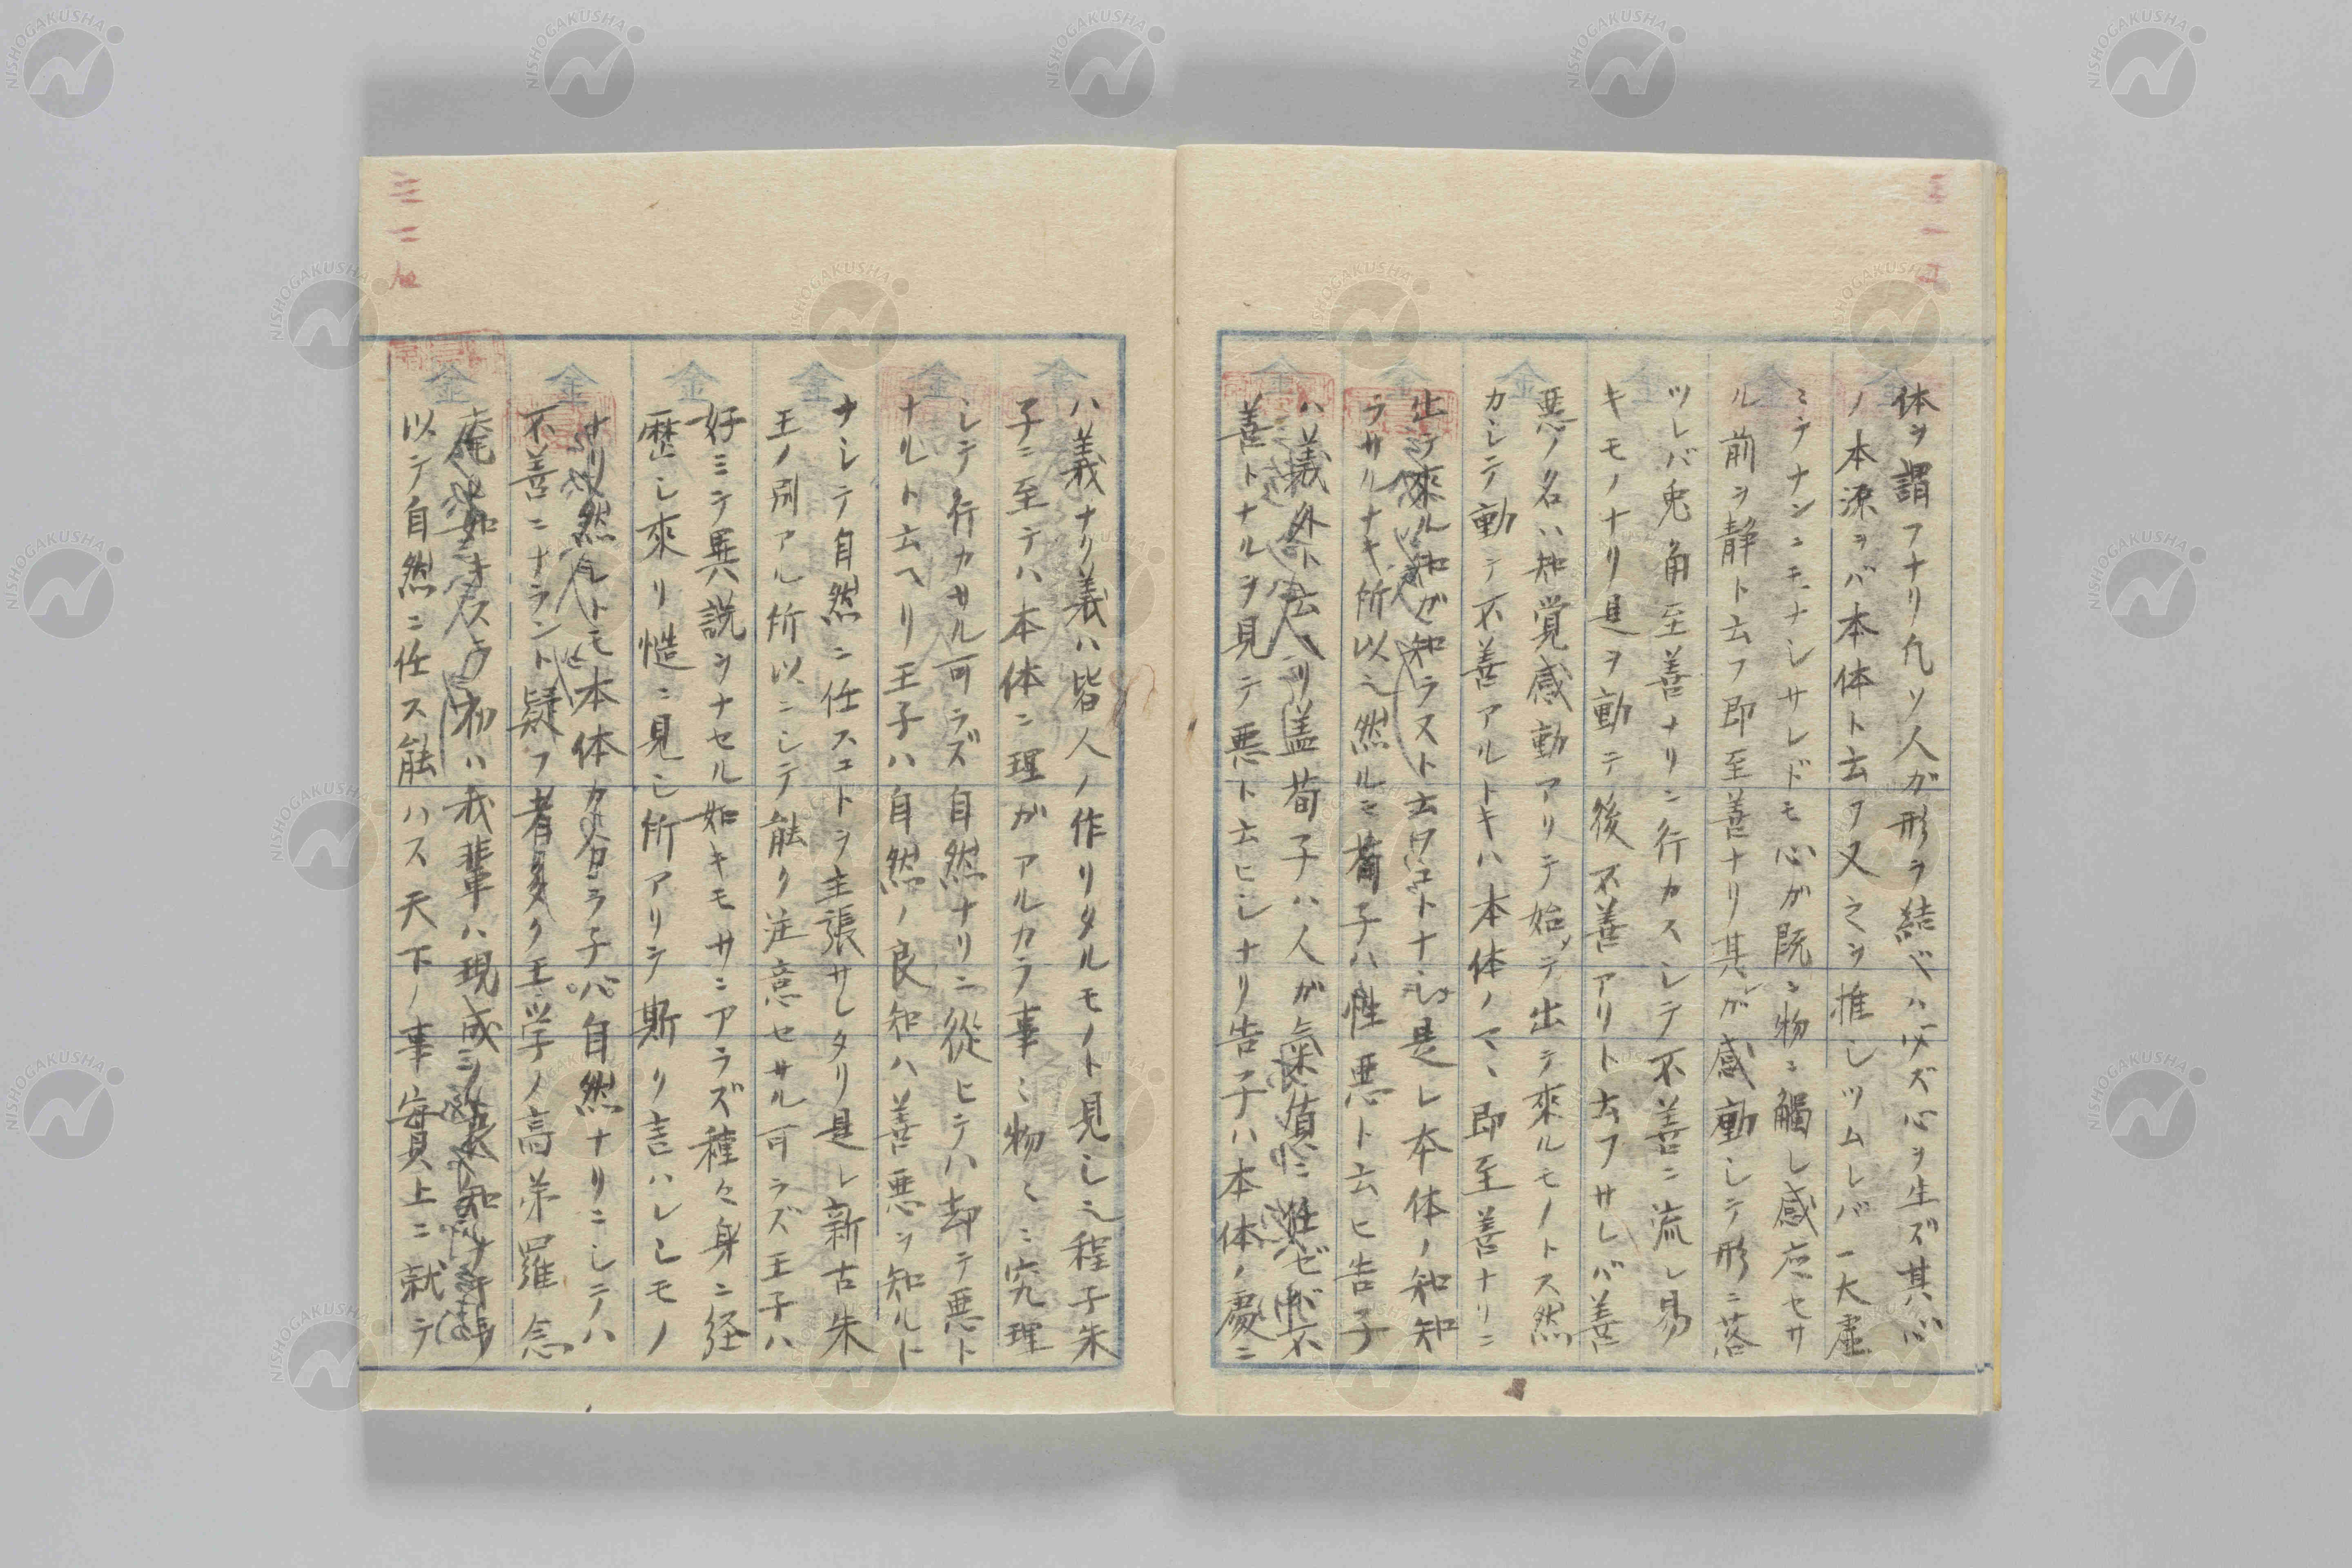 体ヲ謂フナリ凡ソ人ガ形ヲ結ベハ必ズ心ヲ生ズ其心
ノ本源ヲバ本体ト云ヲ又之ヲ推シツムレバ一大虚
ミテナンニモナシサレドモ心ガ既ニ物ニ觸レ感应セサ
ル前ヲ静ト云フ即至善ナリ其レガ感動シテ形ニ落
ツレバ兎角至善ナリニ行カスシテ不善ニ流レ易
キモノナリ是ヲ動テ後不善アリト云フサレバ善
悪ノ名ハ知覚感動アリテ始メテ出テ來ルモノトス然
カシテ動テ不善アルトキハ本体ノマヽ即至善ナリニ
出テ來ル知ガ知ラスト云フコトナシ是レ本体ノ知知
ラサルナキ所以也然ルニ荀子ハ性悪ト云ヒ告子
ハ義外ト云ヘリ盖荀子ハ人ガ氣質ニ任ゼバ不
善トナルヲ見テ悪ト云ヒシナリ告子ハ本体ノ慶ニ
ハ義ナリ義ハ皆人ノ作リタルモノト見シ也程子朱
子ニ至テハ本体ニ理ガアルカラ事ミ物ミニ究理
シテ行カサル可ラズ自然ナリニ從ヒテハ却テ悪ト
ナルト云ヘリ王子ハ自然ノ良知ハ善悪ヲ知ルト
ナシテ自然ニ任スコトヲ主張サレタリ是レ新古朱
王ノ別アル所以ニシテ能ク注意セサル可ラズ王子ハ
好ミテ異説ヲナセル如キモサニアラズ種々身ニ経
歴シ來リ慥ニ見シ所アリテ斯ク言ハレシモノ
ナリ然レトモ本体カラ子バ自然ナリニシテハ
不善ニナラント疑フ者多ク王学ノ高弟羅念
庵ノ如キスラ初ハ我輩ハ現成ノ良知ナ
以テ自然ニ任ス能ハス天下ノ事實上ニ就テ
三一
三二九
NISHOGAKUSHA